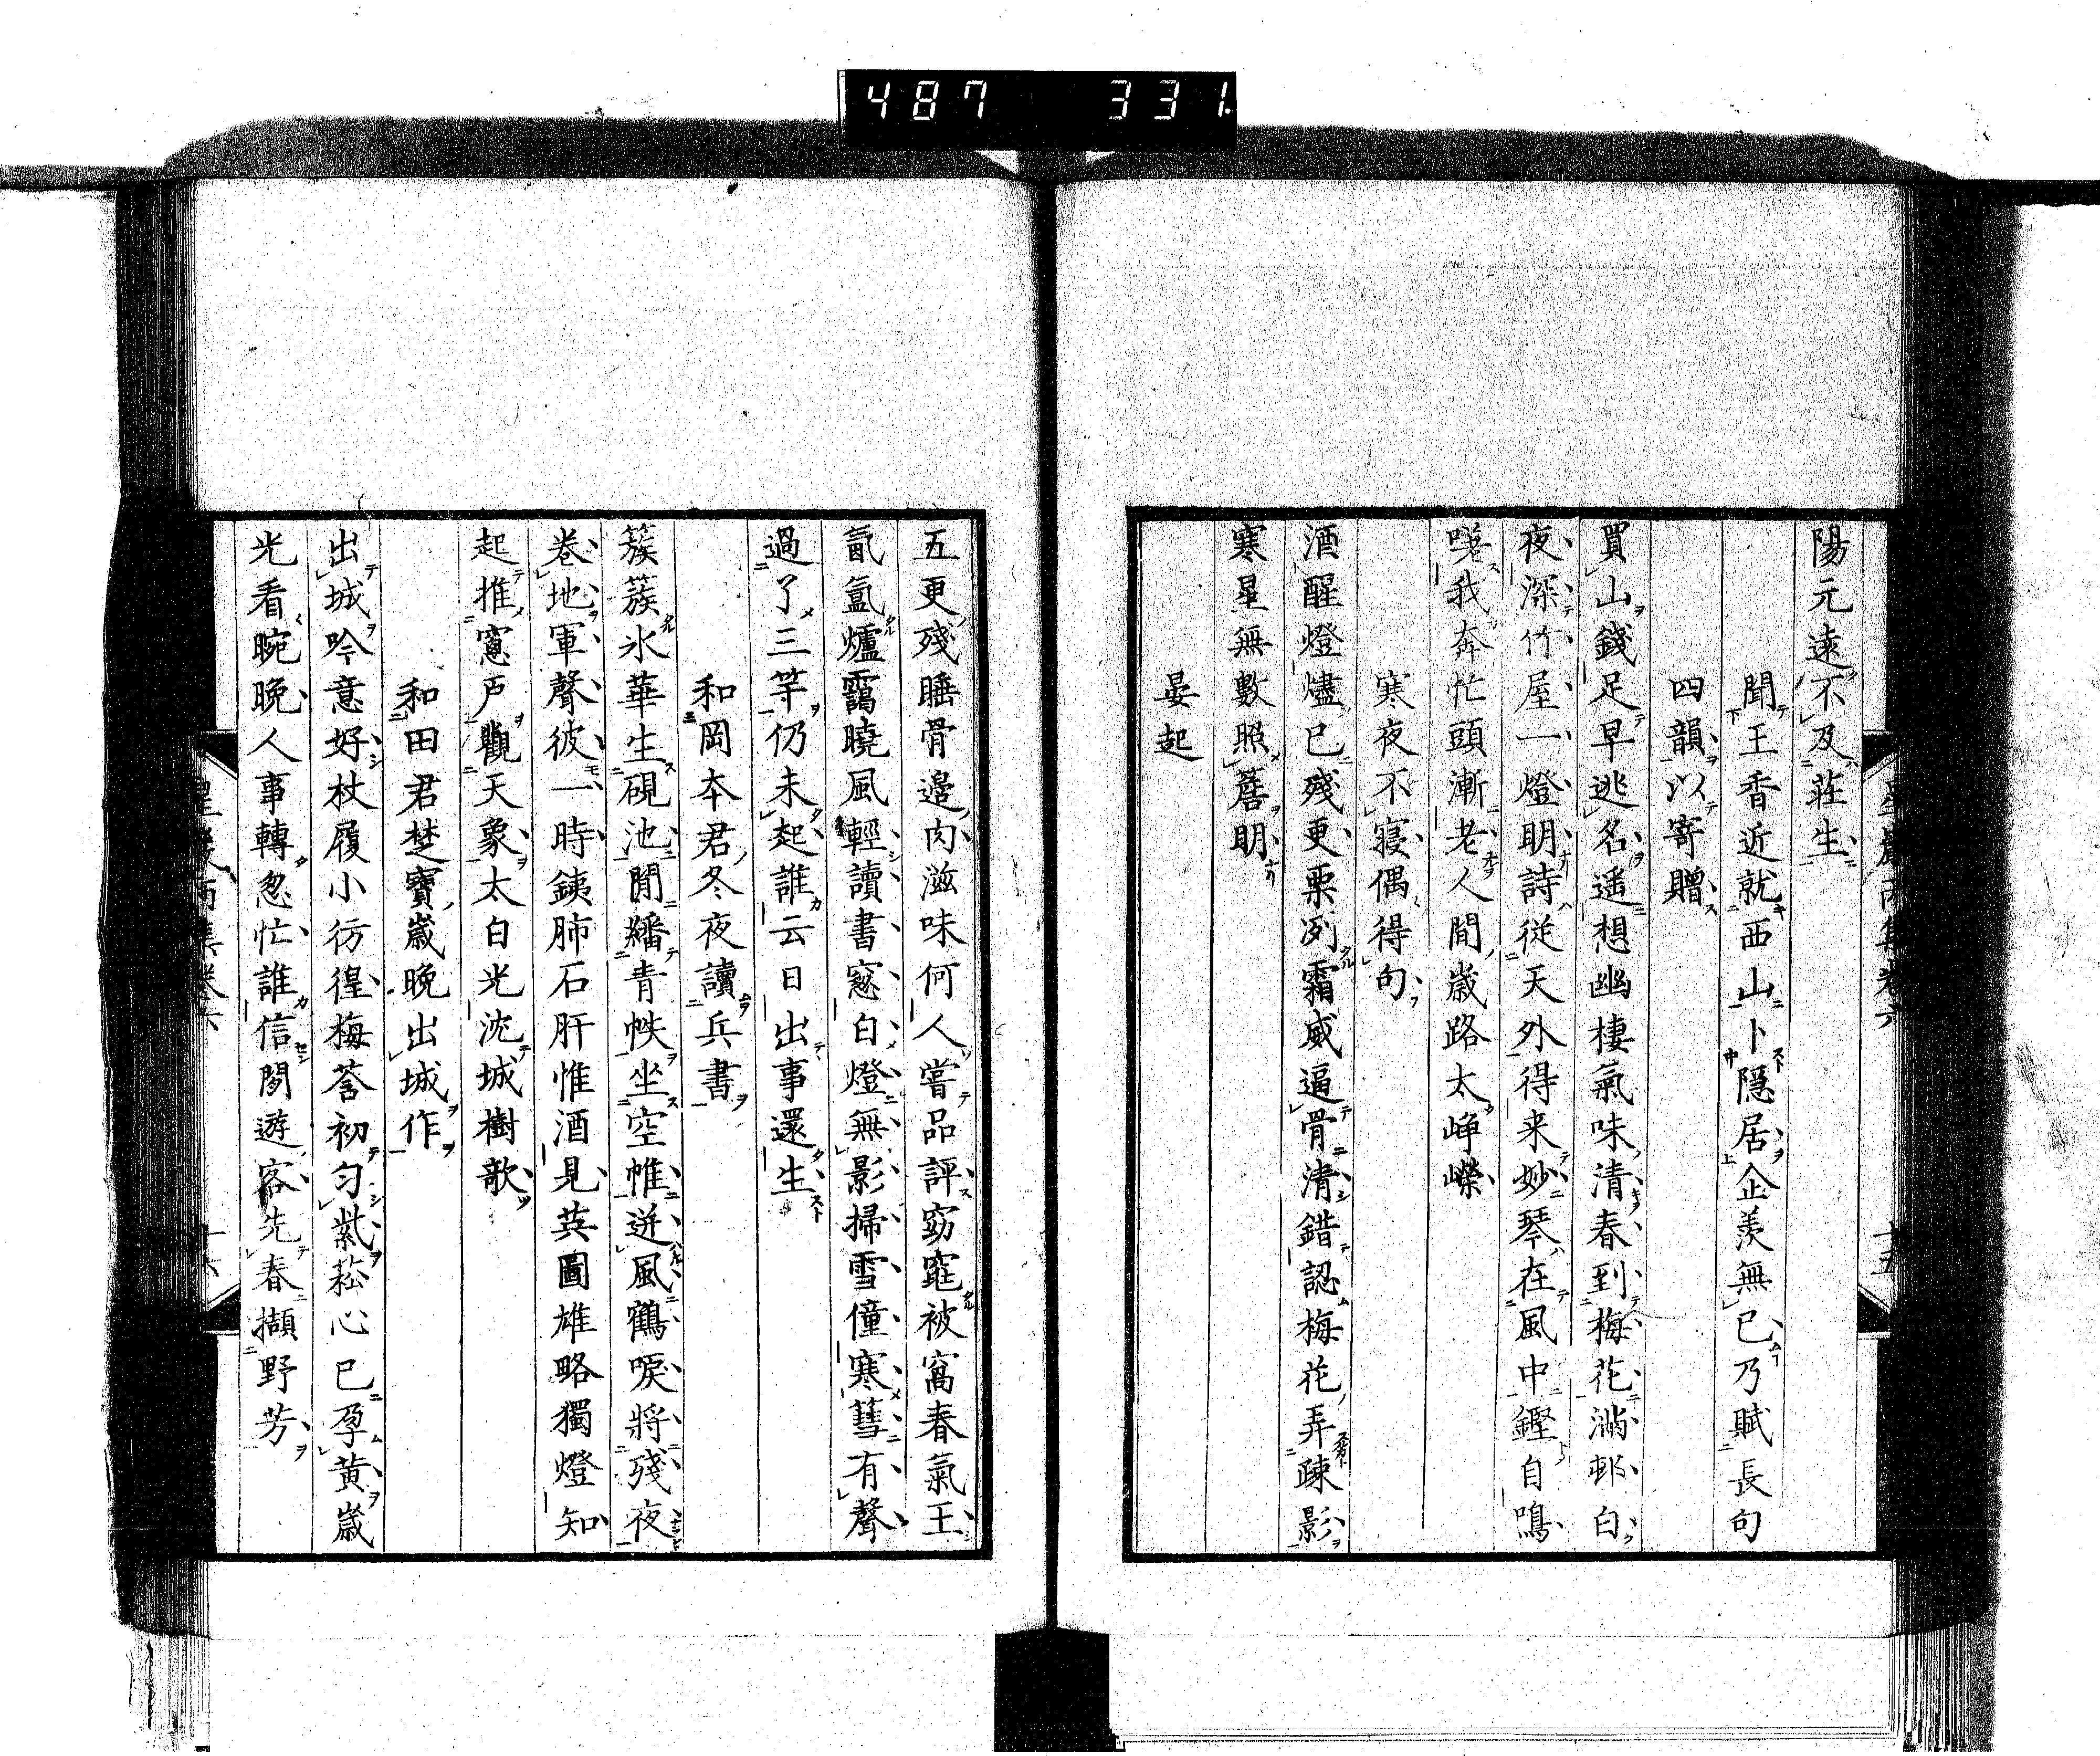 487 331
陽元遠不及莊生
聞王香近就西山卜隱居企羨無已乃賦長句
四韻以寄贈
買山錢足早逃名遥想幽棲氣味清春到梅花滿邨白
夜深竹屋一燈明詩從天外得来妙琴在風中鏗自鳴
嗟我奔忙頭漸老人間歳路太崢嶸
寒夜不寝偶得句
酒醒燈燼已殘更栗冽霜威逼骨清錯認梅花弄疎影
寒星無數照簷明
晏起
五更殘睡骨邊肉滋味何人嘗品評窈窕被窩春氣王
氤氳爐靄曉風輕讀書窓白燈無影掃雪僮寒彗有聲
過了三竿仍未起誰云日出事還生
和岡本君冬夜讀兵書
簇簇氷華生硯池閒繙青帙坐空帷迸風鶴唳將殘夜
卷地軍聲彼一時銕肺石肝惟酒見英圖雄略獨燈知
起推窻戸觀天象太白光沈城樹歌
和田君楚寶歳晩出城作
出城吟意好杖履小彷徨梅萼初匀紫菘心已孕黄歳
光看晼晩人事轉怱忙誰信閒遊客先春擷野芳